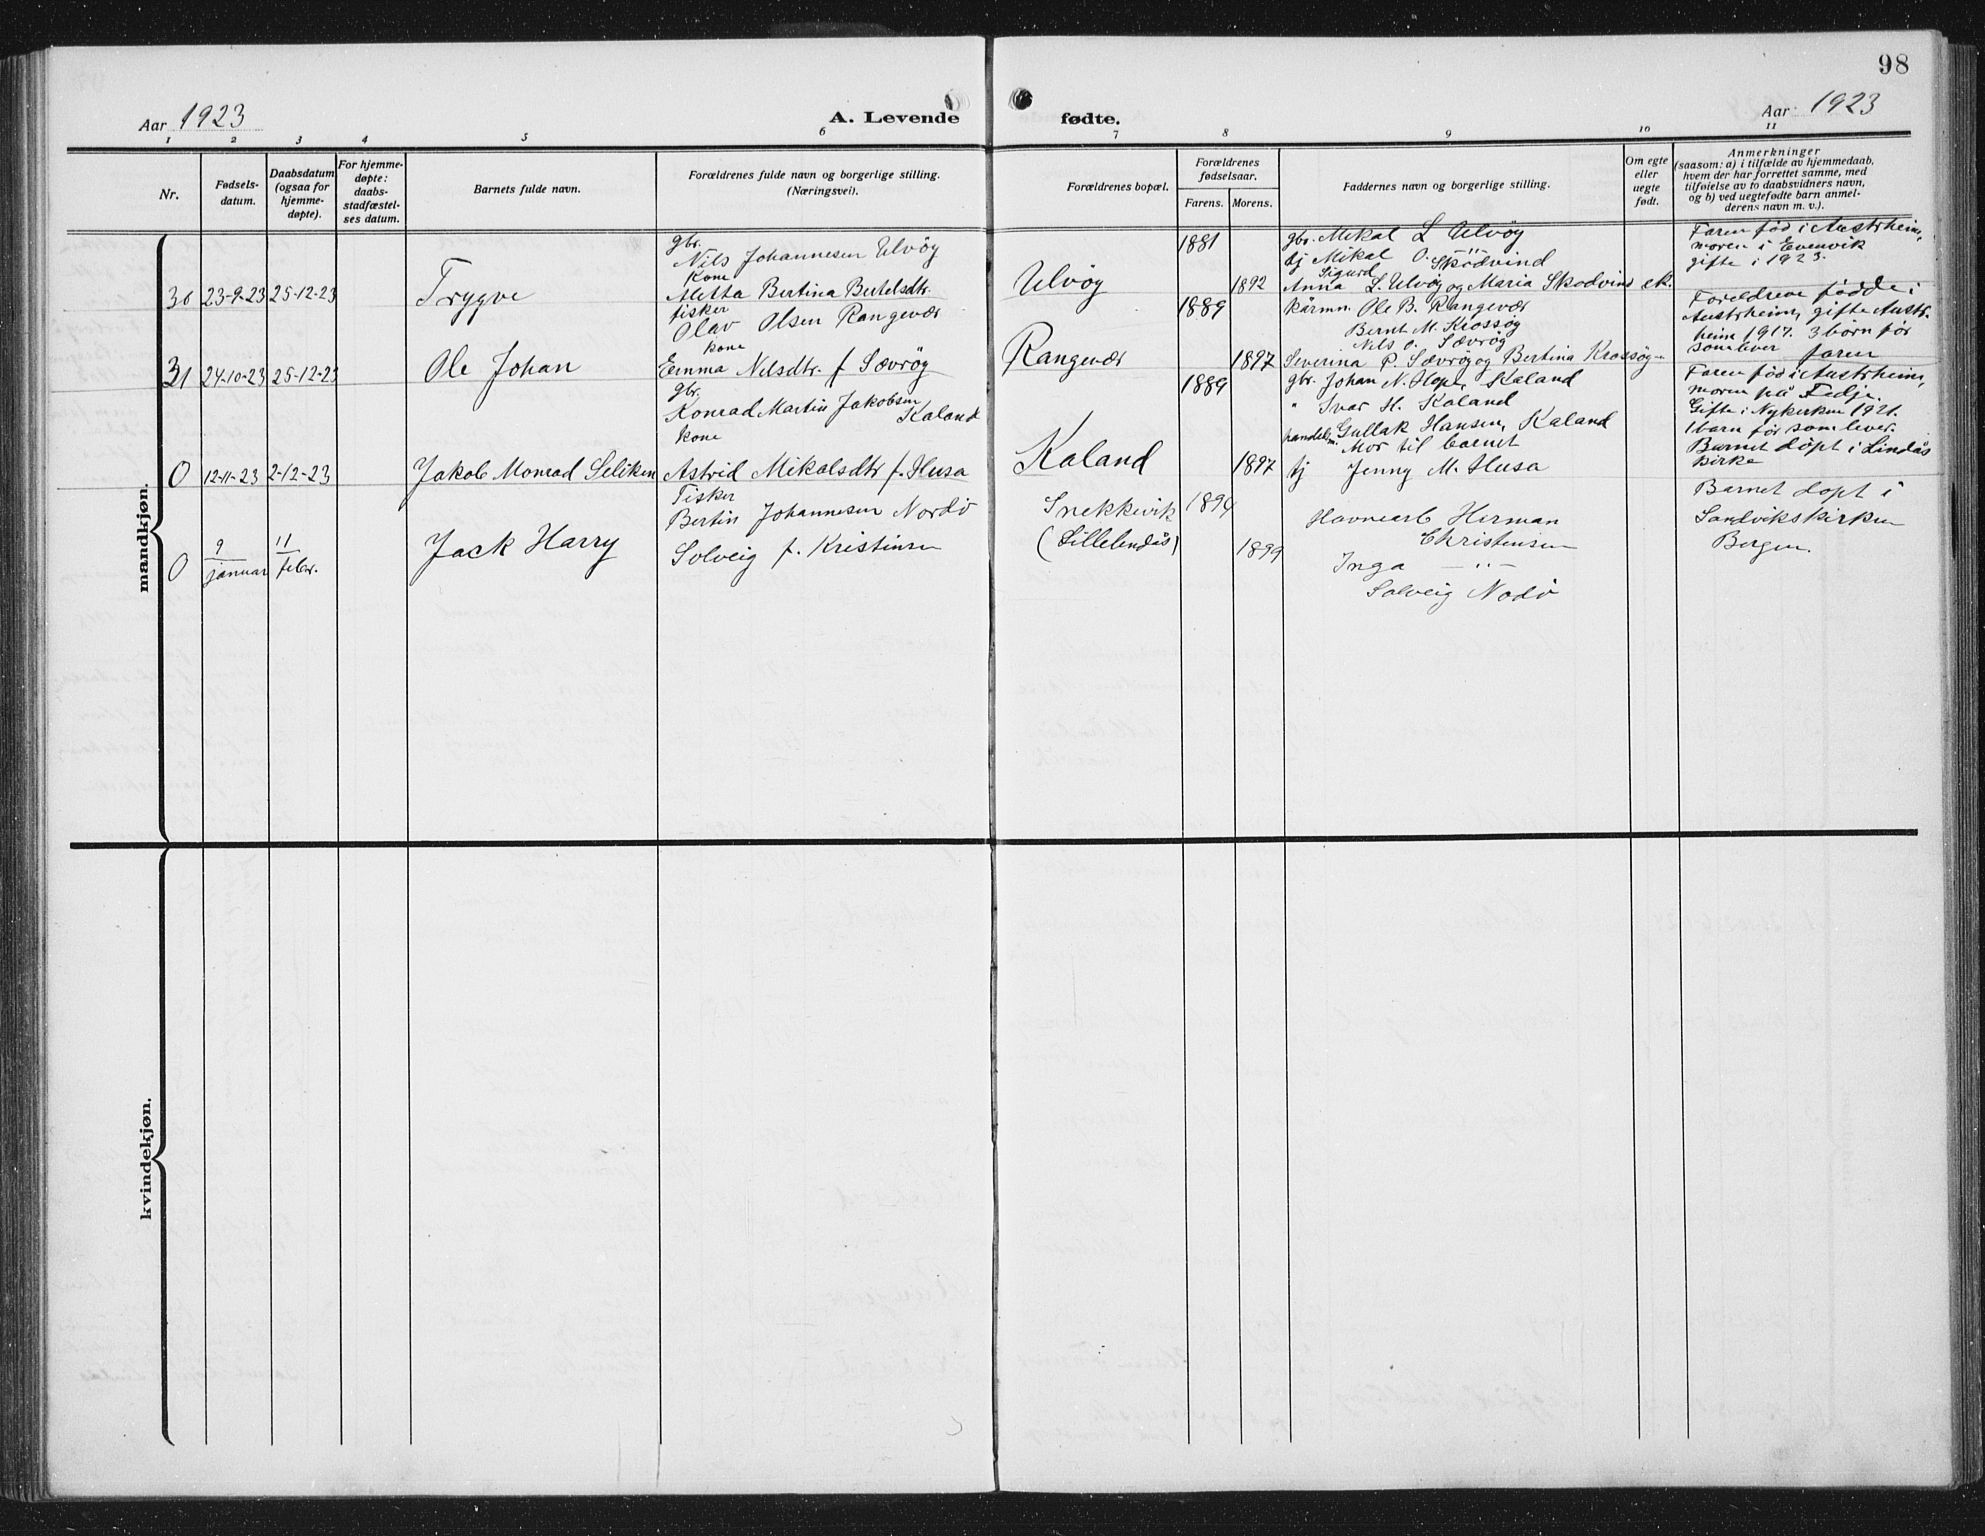 98
Aar 1923
A. Levende
fødte.
Aar 1923
1 2 3 4 5 6 7 8 9 10 11
Nr.
Fødsels-
datum.
Daabsdatum
(ogsaa for
hjemme-
døpte).
For hjemme-
døpte:
daabs-
stadfæstel-
ses datum.
Barnets fulde navn.
Forældrenes fulde navn og borgerlige stilling.
(Næringsvei).
Forældrenes bopæl.
Forældrenes
fødselsaar.
Farens. Morens.
Faddernes navn og borgerlige stilling.
Om egte
eller
uegte
født.
Anmerkninger
(saasom: a) i tilfælde av hjemmedaab,
hvem der har forrettet samme, med
tilføielse av to daabsvidners navn,
og b) ved uegtefødte barn anmel-
derens navn m. v.).
mandkjøn.
30 23-9-23 25-12-23
Trygve
gbr.
Nils Johannesen Ulvöy
Kone
Metta Bertina Bertelsdtr.
Ulvöy
1881
1892
gbr. Mikal L Ulvöy
tj Mikal O. Skodvind
Sigurd
Anna L. Ulvöy og Maria Skodvind
Faren föd i Austrheim,
moren i Evenvik
gifte i 1923.
31 24-10-23 25-12-23
Ole Johan
fisker
Olav Olsen Rangevær
kone
Emma Nilsdtr. f Sævröy
Rangevær
1889
1897
kårmn. Ole B. Rangevær
Bernt M. Krossöy
Nils O. Sævröy
Severina P. Sævröy og Bertina Krossöy
Foreldrene födde i
Austrheim, gifte Austr-
heim 1917. 3 börn för
som lever
0 12-11-23 2-12-23
Jakob Monrad Seliken
gbr.
Konrad Martin Jakobsen
Kaland
kone
Astrid Mikalsdtr f. Husa
Kaland
1889
1897
gbr. Johan N. Hope, Kaland
" Ivar H. Kaland
handelsm. Gullak Hansen, Kaland
Mor til barnet
tj Jenny M. Husa
Faren föd i Austrheim,
moren på Fedje.
Gifte i Nykerken 1921.
1 barn för som lever.
Barnet döpt i Lindås
Kirke
0 9 januar 11 febr.
Jack Harry
Fisker
Bertin Johannesen Nordö
Solveig f. Kristinsen
Snekkevik
(Lillelindås)
1894
1899
Havnearb Herman
Christensen
Inga — " —
Solveig Nodö
Barnet döpt i
Sandvikskirken
Bergen.
kvindekjøn.